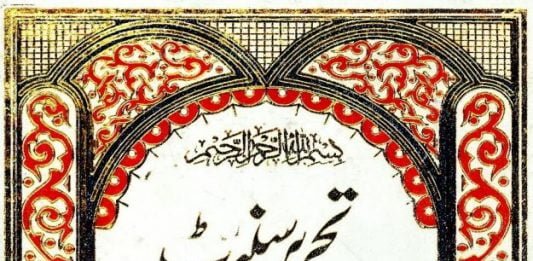 بسم الله الرحمن الرحيم
تحریر سنبٹ